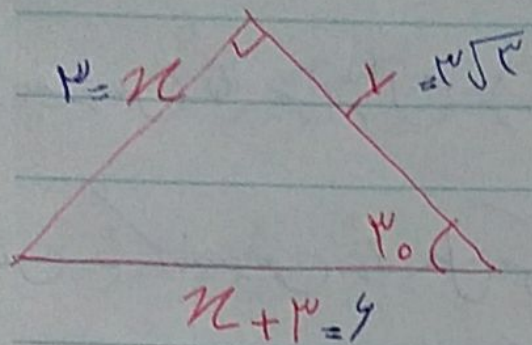 ۳ = x
y = ۳√۳
۳۰
x + ۳ = ۶